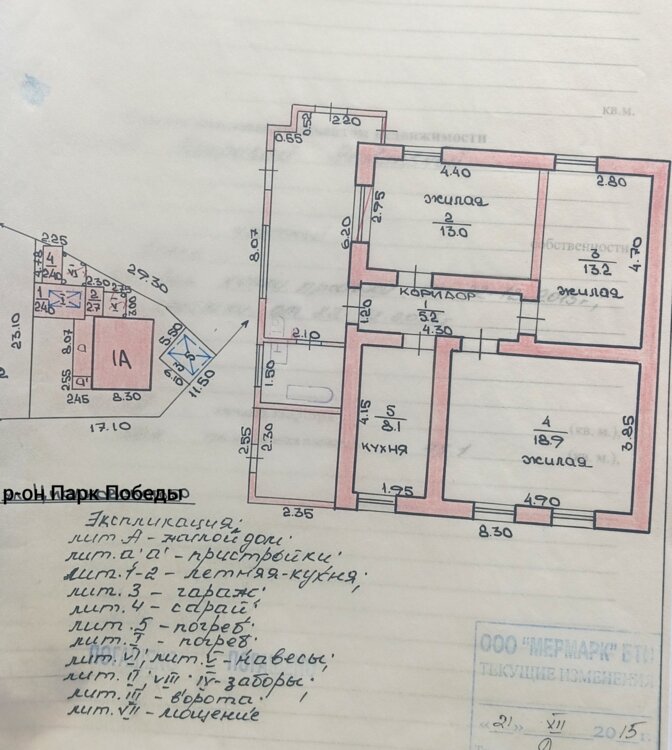 кв.м.
0.52
2.20
0.55
4.40
2.80
жилая
2
13.0
2.95
6.20
8.07
3
13.2
жилая
4.70
собственности
КОРИДОР
1
5.2
1.20
4.30
2.10
1.50
4.15
5
8.1
кухня
1.95
4
18.9
жилая
3.85
(кв. м.)
4.90
8.30
2.55
2.30
2.35
2.25
4
2.30
29.30
23.10
8.07
1А
5.50
5
11.50
2.55
2.45
8.30
17.10
р-он Парк Победы
Экспликация:
лит. А - жилой дом;
лит. а' а' - пристройки;
лит. 1-2 - летняя-кухня;
лит. 3 - гараж;
лит. 4 - сарай;
лит. 5 - погреб;
лит. I - погреб;
лит. VI, лит. V - навесы;
лит. II, VIII IV - заборы;
лит. III - ворота;
лит. VII - мощение
ООО "МЕРМАРК" БТИ
ТЕКУЩИЕ ИЗМЕНЕНИЯ
"21" XII 2015 г.